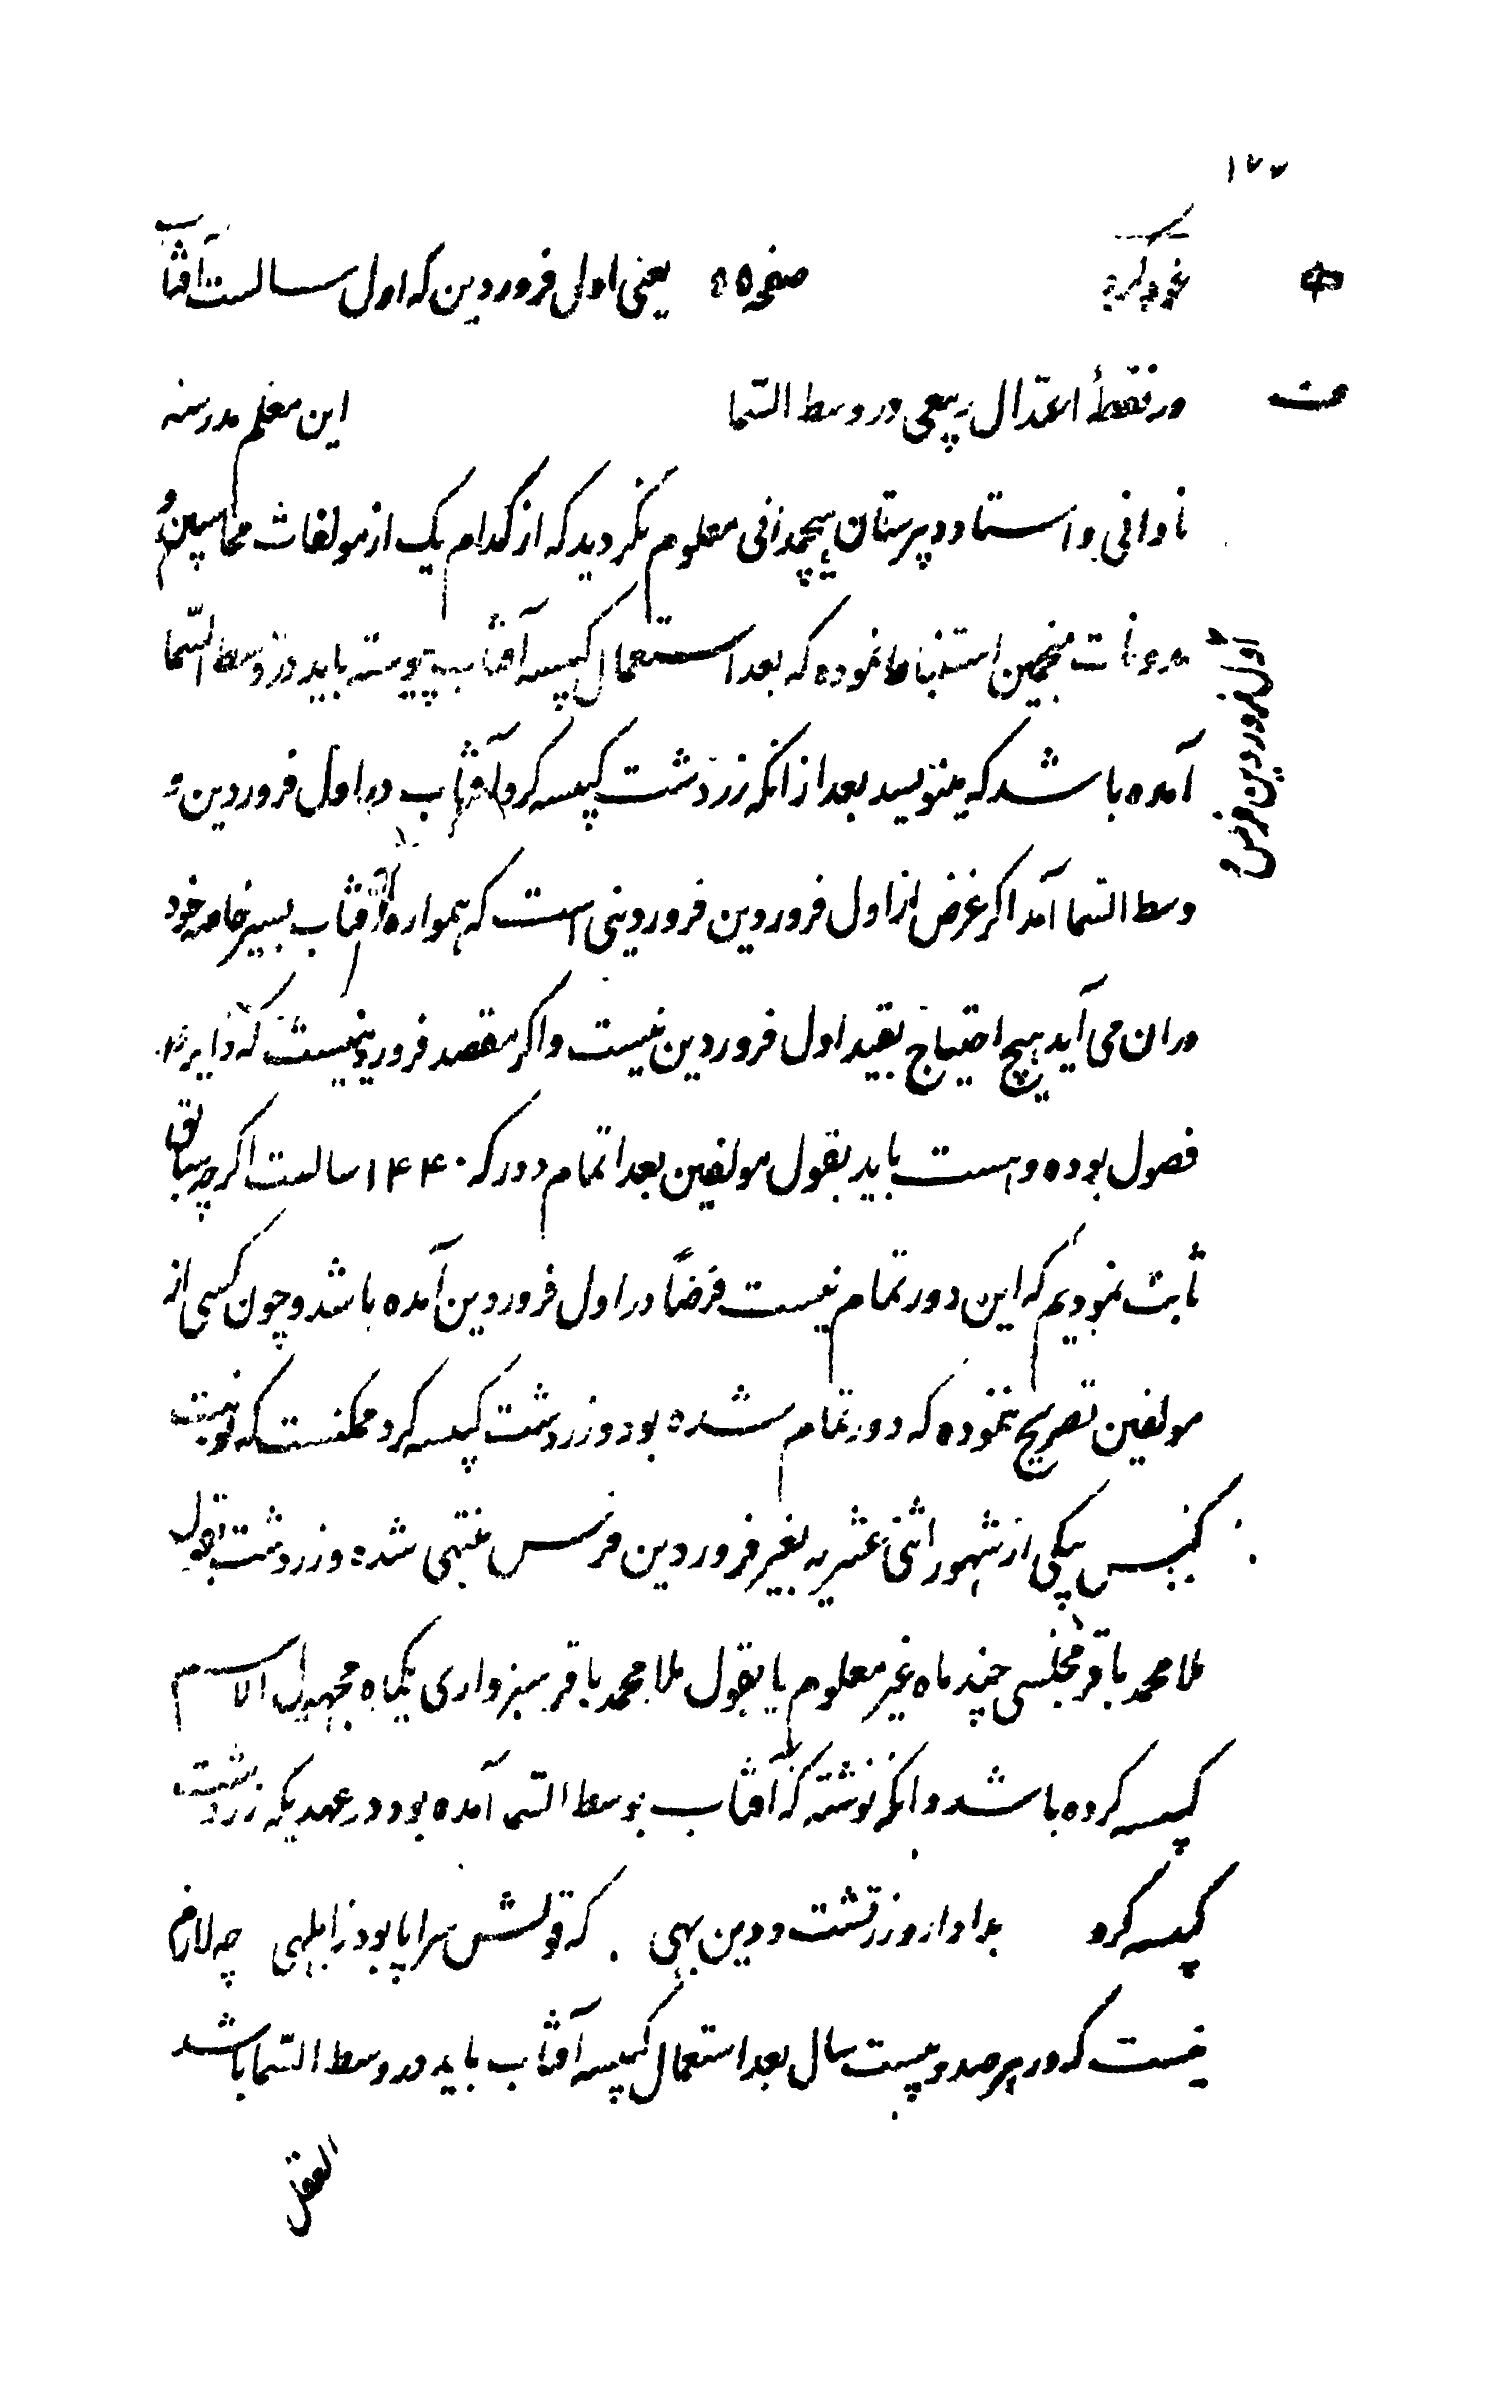 ۱۷۷
غور کرد صفحه ۵۵ یعنی اول فروردین که اول سالست آفتاب
در نقطهٔ اعتدال ربیعی در وسط السّما این معلم مدرسه
نادانی و استاد دبرستان هیچمدانی معلوم نکردید که از کدام یک از مولفات محاسبین و
مدونات منجمین استنباط نموده که بعد استعمال کبیسه آفتاب پیوسته باید در وسط السّما
آمده باشد که مینویسد بعد از انکه زردشت کبیسه کرد آفتاب در اول فروردین به
وسط السّما آمد اکر غرض از اول فروردین فروردینی است که همواره آفتاب بسیر خاصه خود
دران می آید هیچ احتیاج بقید اول فروردین نیست و اکر مقصد فروردینیست که دایر در
فصول بوده و هست باید بقول مولفین بعد اتمام دور که ۱۴۴۰ سالست اکرچه سابق
ثابت نمودیم که این دور تمام نیست فرضاً در اول فروردین آمده باشد و چون کسی از
مولفین تصریح ننموده که دور تمام شده بود و زردشت کبیسه کرد ممکنست که نوبت
کبس بیکی از شهور اثنی عشریه بغیر فروردین فرس منتهی شده و زردشت بقول
ملا محمد باقر مجلسی چند ماه غیر معلوم یا بقول ملا محمد باقر سبزواری یکماه مجهول الاسم
کبیسه کرده باشد و انکه نوشته که آفتاب بوسط السّما آمده بود در عهدیکه زردشت
کبیسه کرد بدادار و زرتشت و دین بهی که قولش سراپا بود زابلهی چه لازم
نیست که در هر صد و بیست سال بعد استعمال کبیسه آفتاب باید در وسط السّما باشد
العقل
اول فروردین فرض و